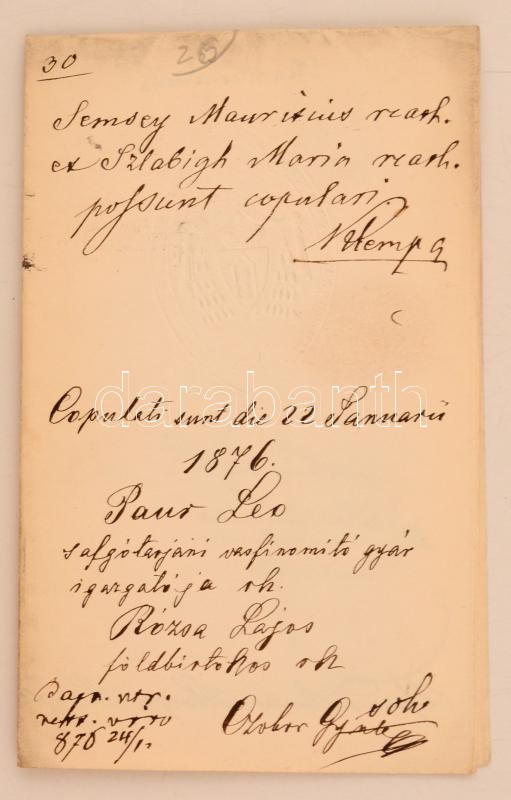 30
25
Semsey Mauritius rcath.
et Szlabigh Maria rcath.
possunt copulari
darabanth
Copulati sunt die 22 Januarii
1876.
Paur Leo
salgótarjáni vasfinomító gyár
igazgatója rk.
Rózsa Lajos
földbirtokos rk
Czobor Gyula
876 24/1.